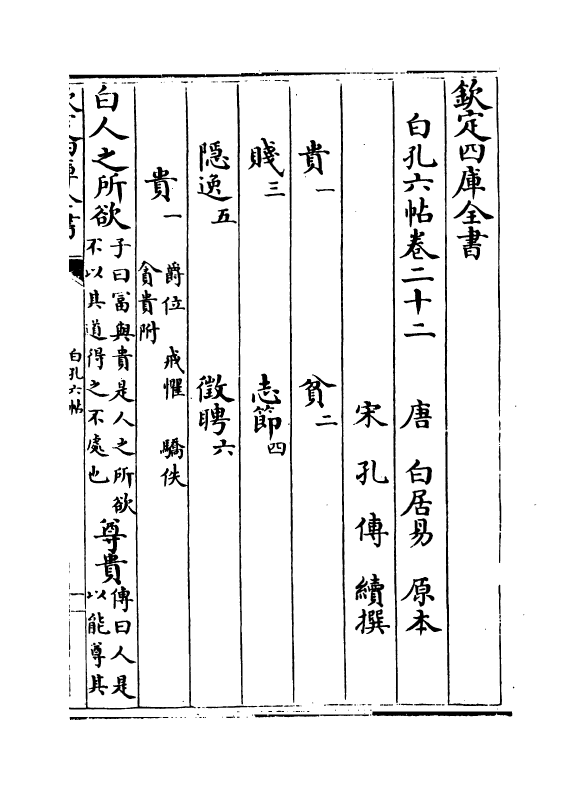 欽定四庫全書
白孔六帖卷二十二　唐　白居易　原本
宋　孔　傳　續撰
貴一　貧二
賤三　志節四
隱逸五　徵聘六
貴一　爵位　戒懼　驕佚
貪貴附
白人之所欲子曰富與貴是人之所欲
不以其道得之不處也尊貴傳曰人是
以能尊其
白孔六帖
一